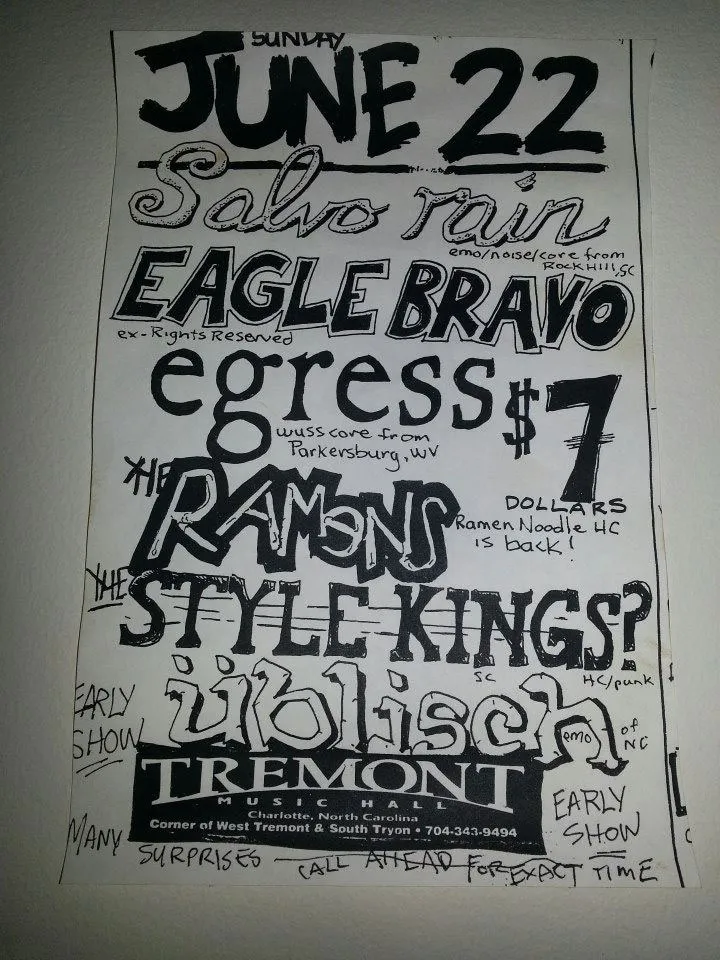 SUNDAY
JUNE 22
Salvo rain
emo/noise/core from
Rock Hill, SC
EAGLE BRAVO
ex-Rights Reserved
egress
$7
DOLLARS
wusscore from
Parkersburg, WV
THE RAMENS
Ramen Noodle HC
is back!
THE STYLE KINGS?
SC HC/punk
EARLY
SHOW
üblisch
emo of
NC
TREMONT
MUSIC HALL
Charlotte, North Carolina
Corner of West Tremont & South Tryon • 704-343-9494
EARLY
SHOW
MANY SURPRISES — CALL AHEAD FOR EXACT TIME